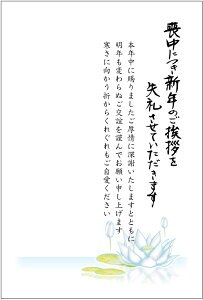 喪中につき新年のご挨拶を
失礼させていただきます
本年中に賜りましたご厚情に深謝いたしますとともに
明年も変わらぬご交誼を謹んでお願い申し上げます
寒さに向かう折からくれぐれもご自愛ください